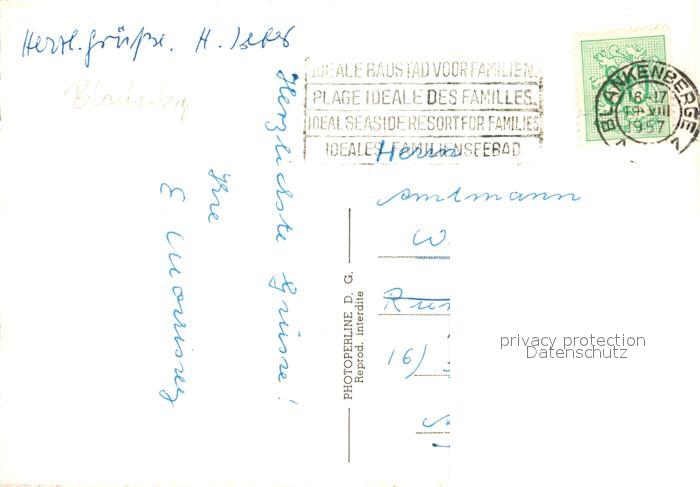 Herzl. Grüße. H.
Blankenberge
Herzlichste Grüsse!
Ihre
E.
IDEALE BADSTAD VOOR FAMILIEN.
PLAGE IDEALE DES FAMILLES.
IDEAL SEASIDE RESORT FOR FAMILIES
IDEALES FAMILIENSEEBAD
BLANKENBERGE
16-17
VIII
1957
Herrn
Amtmann
W.
16)
PHOTOPERLINE D. G.
Reprod. interdite
privacy protection
Datenschutz